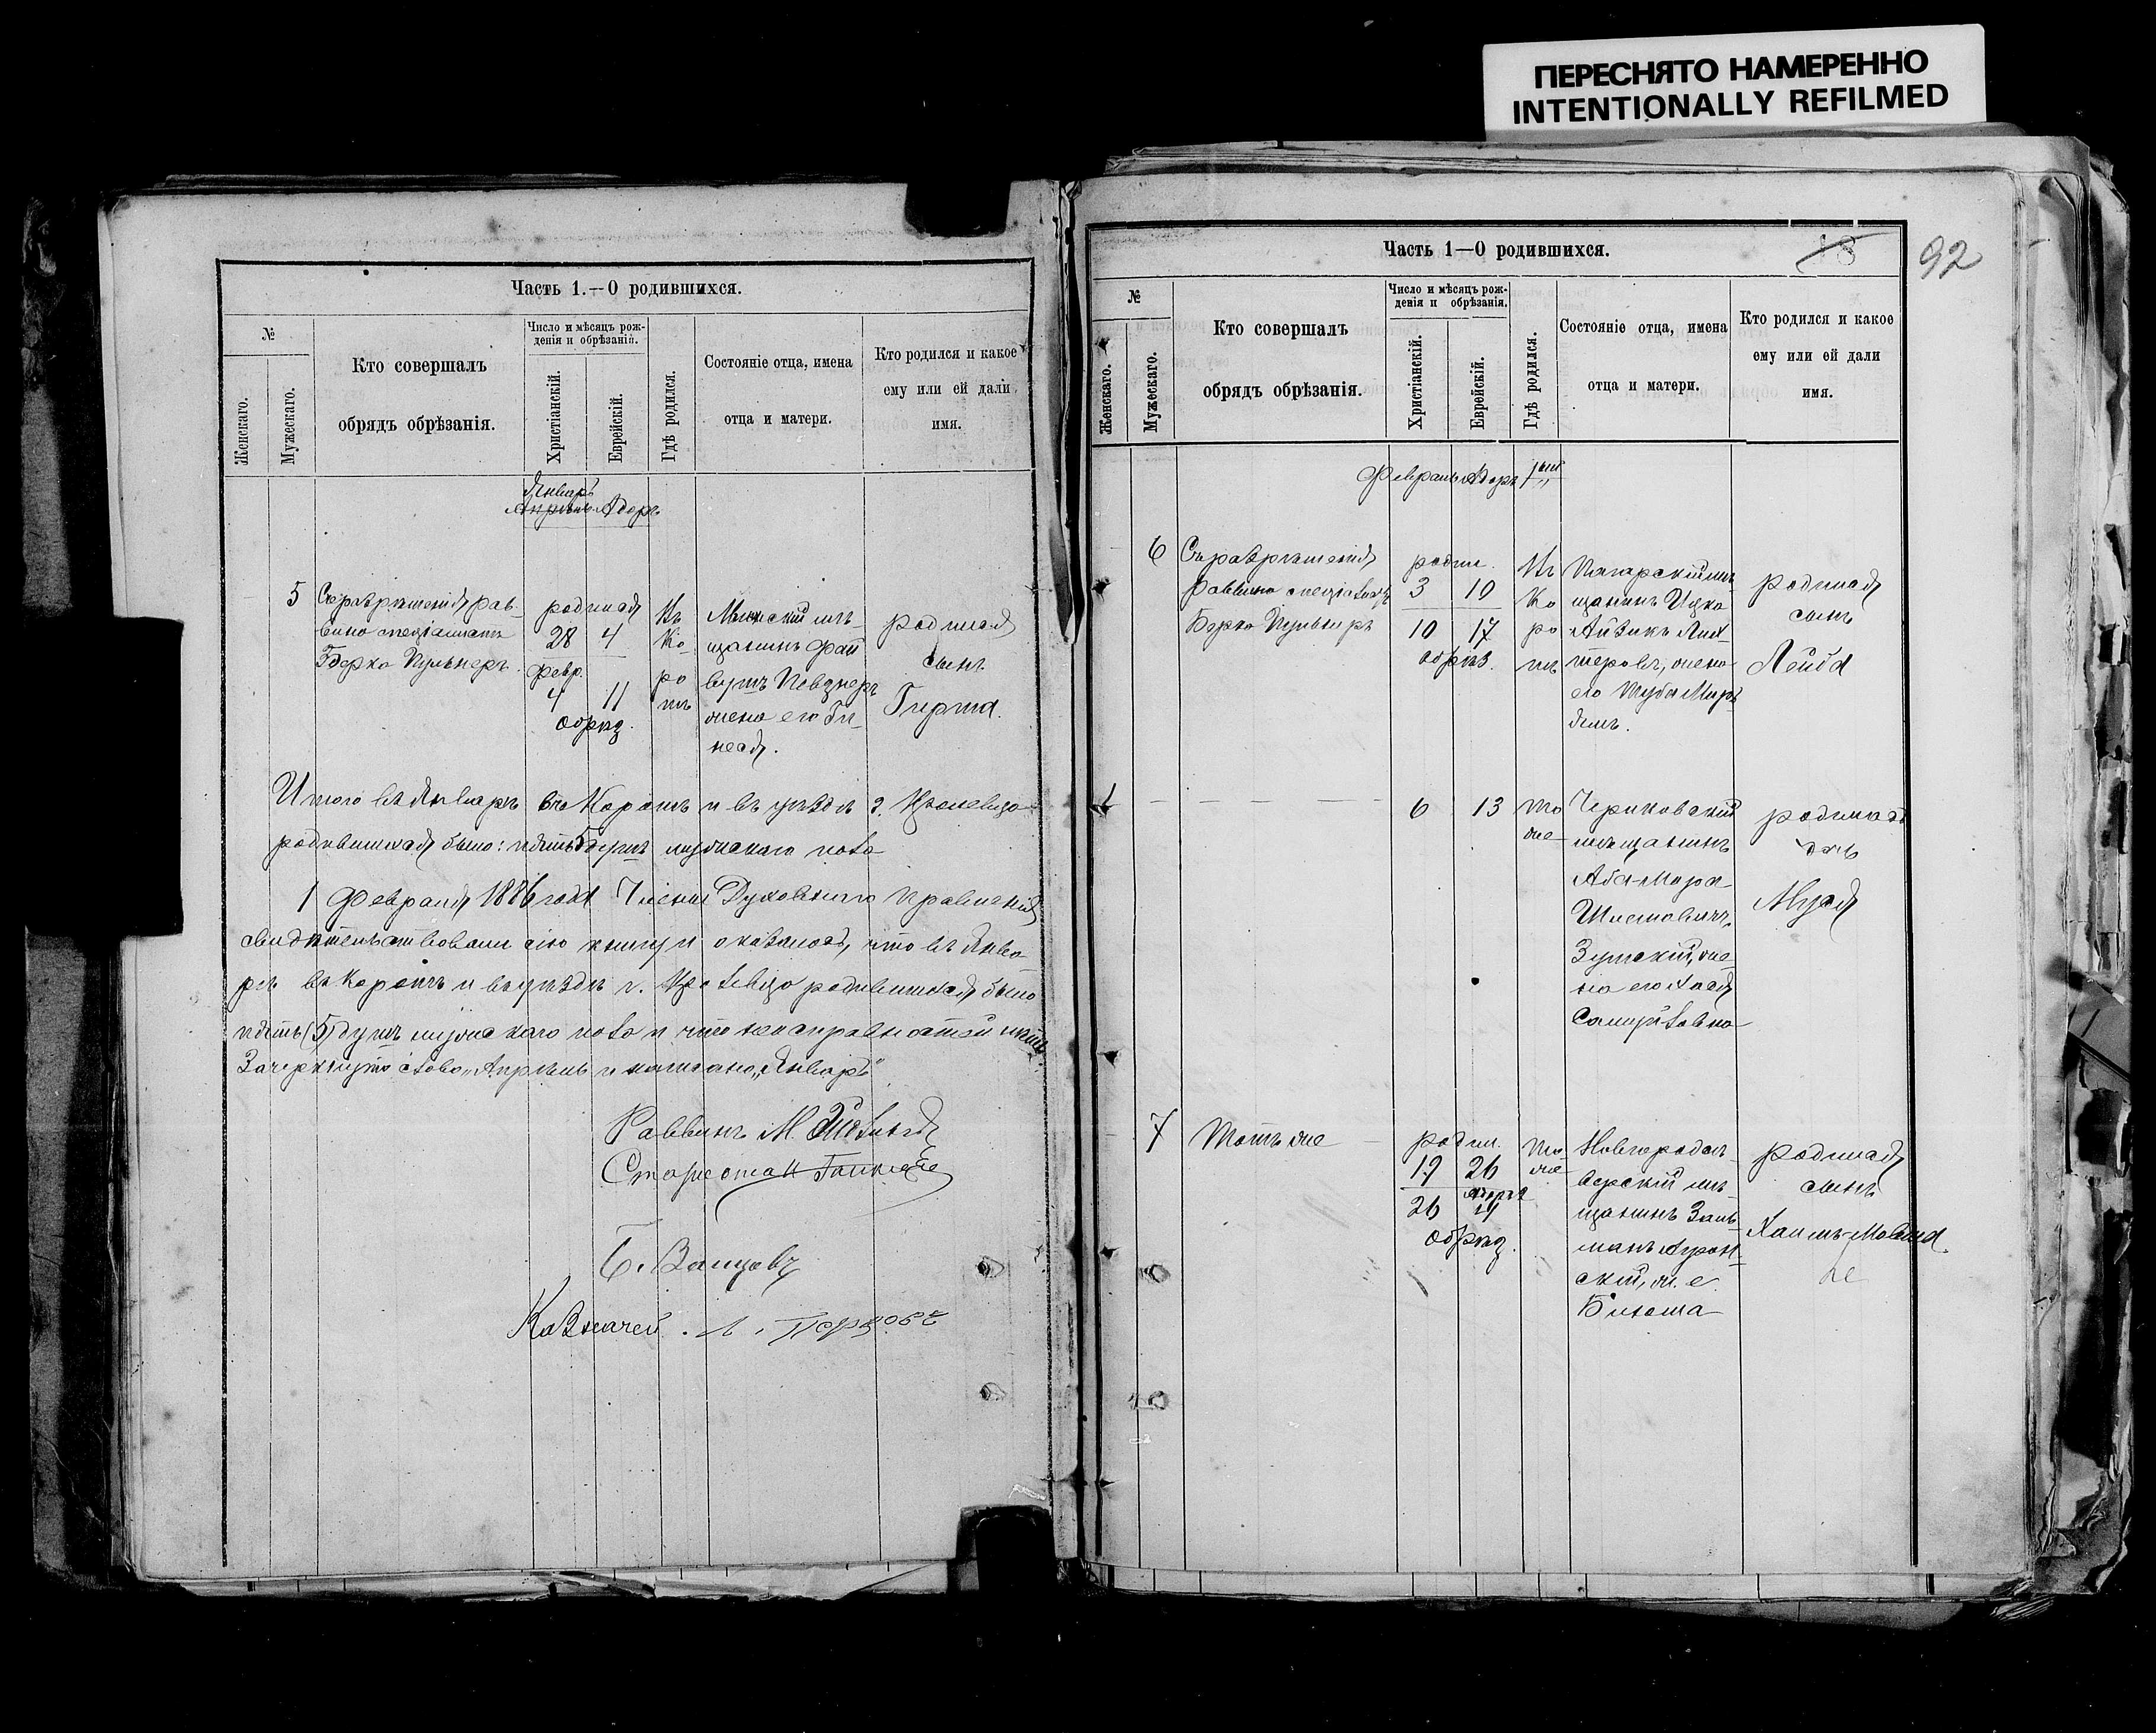 ПЕРЕСНЯТО НАМЕРЕННО
INTENTIONALLY REFILMED
Часть 1.—О родившихся.
№
Женскаго.
Мужескаго.
Кто совершалъ
обрядъ обрѣзанія.
Число и мѣсяцъ рож-
денія и обрѣзанія.
Христіанскій.
Еврейскій.
Гдѣ родился.
Состояніе отца, имена
отца и матери.
Кто родился и какое
ему или ей дали
имя.
Январь
Апрѣль Адоръ
5
Съ разрѣшенія рав-
вина спеціалистъ
Берко Пульнеръ.
родился
28 4
февр.
4 11
обрѣз.
Въ
Ко-
ро
пѣ
Минскій мѣ-
щанинъ Фай
вушъ Певзнеръ
жена его Ги-
неся.
родился
сынъ
Гирша.
Итого въ Январѣ въ Коропѣ и въ уѣздѣ г. Кролевца
родившихся было: пять 5 душъ мужескаго пола
1 Февраля 1886 года Члены Духовнаго Правленія
свидѣтельствовали сію книгу и оказалось, что въ Янва-
рѣ въ Коропѣ и въ уѣздѣ г. Кролевца родившихся было
пять (5) душъ мужескаго пола и что неисправностей нѣтъ
Зачеркнуто слово „Апрѣль" и написано „Январь"
Раввинъ М.
Староста
Б.
Казначей . Л.
Часть 1—О родившихся.
18
92
№
Женскаго.
Мужескаго.
Кто совершалъ
обрядъ обрѣзанія.
Число и мѣсяцъ рож-
денія и обрѣзанія.
Христіанскій.
Еврейскій.
Гдѣ родился.
Состояніе отца, имена
отца и матери.
Кто родился и какое
ему или ей дали
имя.
Февраль Адоръ 1ый
6
Съ разрѣшенія
раввина спеціалистъ
Берко Пульнеръ
родил.
3 10
10 17
обрѣз.
Въ
Ко
ро
пѣ
Погарскій мѣ-
щанинъ Ицко
Айзикъ Лих-
теровъ, жена
его Туба Мирь
ямъ.
родился
сынъ
Лейба
1
6 13
То
же
Чериковскій
мѣщанинъ
Аба-Мора
Шлемовичъ
жена его Хася
Самуйловна
родилась
дочь
Муся
7
Тотъ же
родил.
19 26
Адоръ 2
26 4
обрѣз.
То
же
Новгородсѣ-
верскій мѣ-
щанинъ Заль-
манъ
скій, ж. е.
родился
сынъ
Хаимъ-Мовша